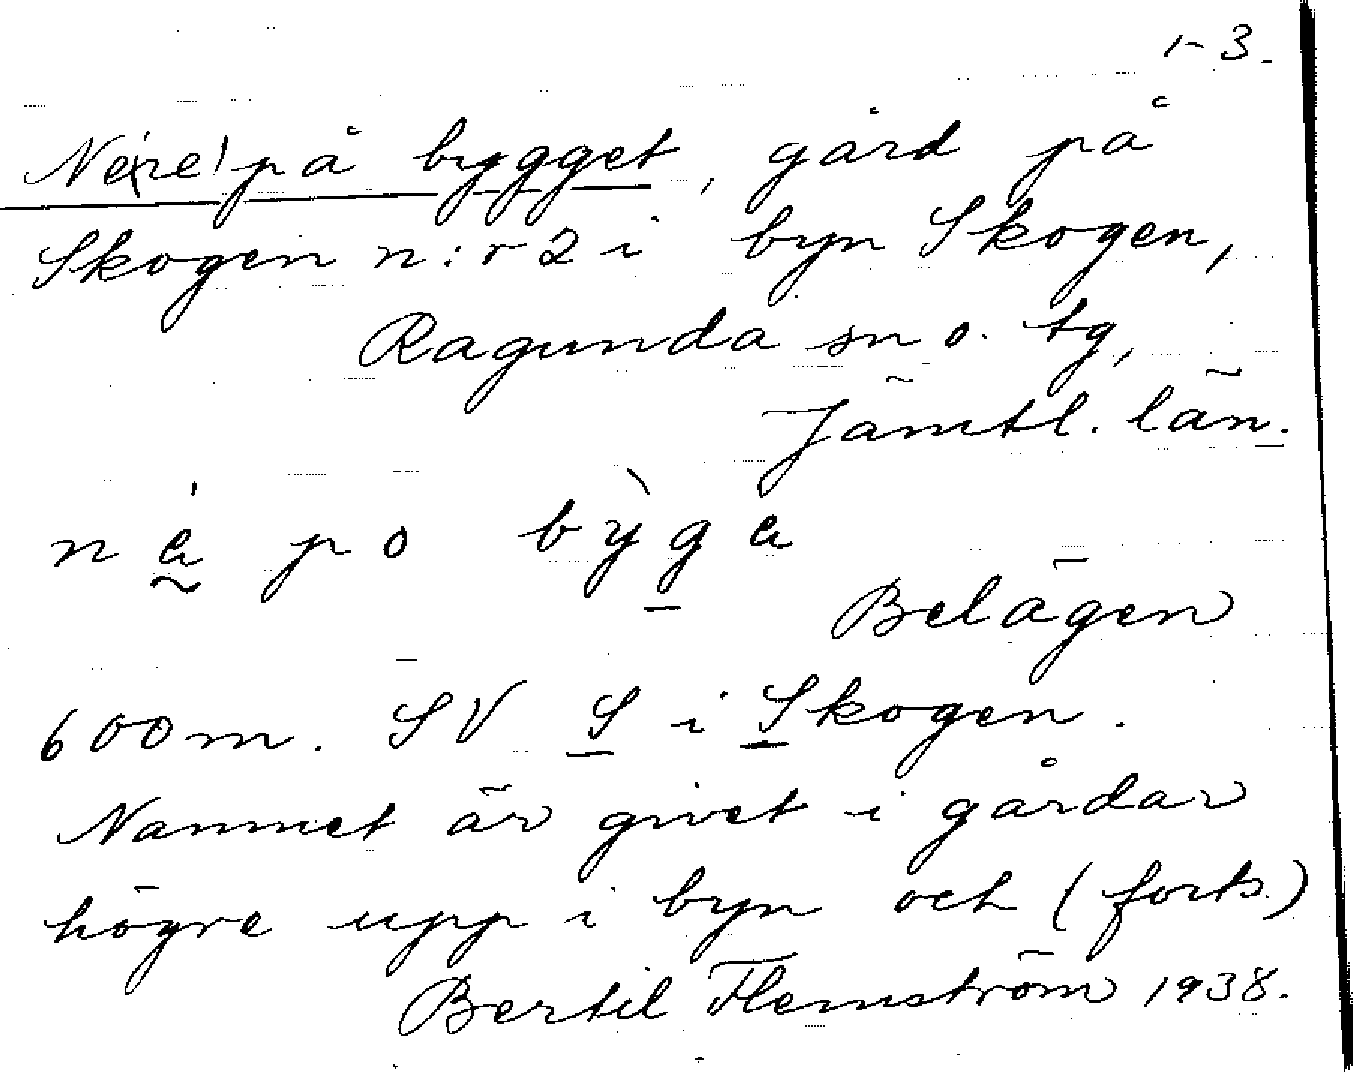 1-3.
Ne(re) på bygget, gård på
Skogen n:r 2 i byn Skogen,
Ragunda sn o. tg,
Jämtl. län.
Belägen
600 m. SV S i Skogen.
Namnet är givet i gårdar
högre upp i byn och (forts.)
Bertil Flemström 1938.